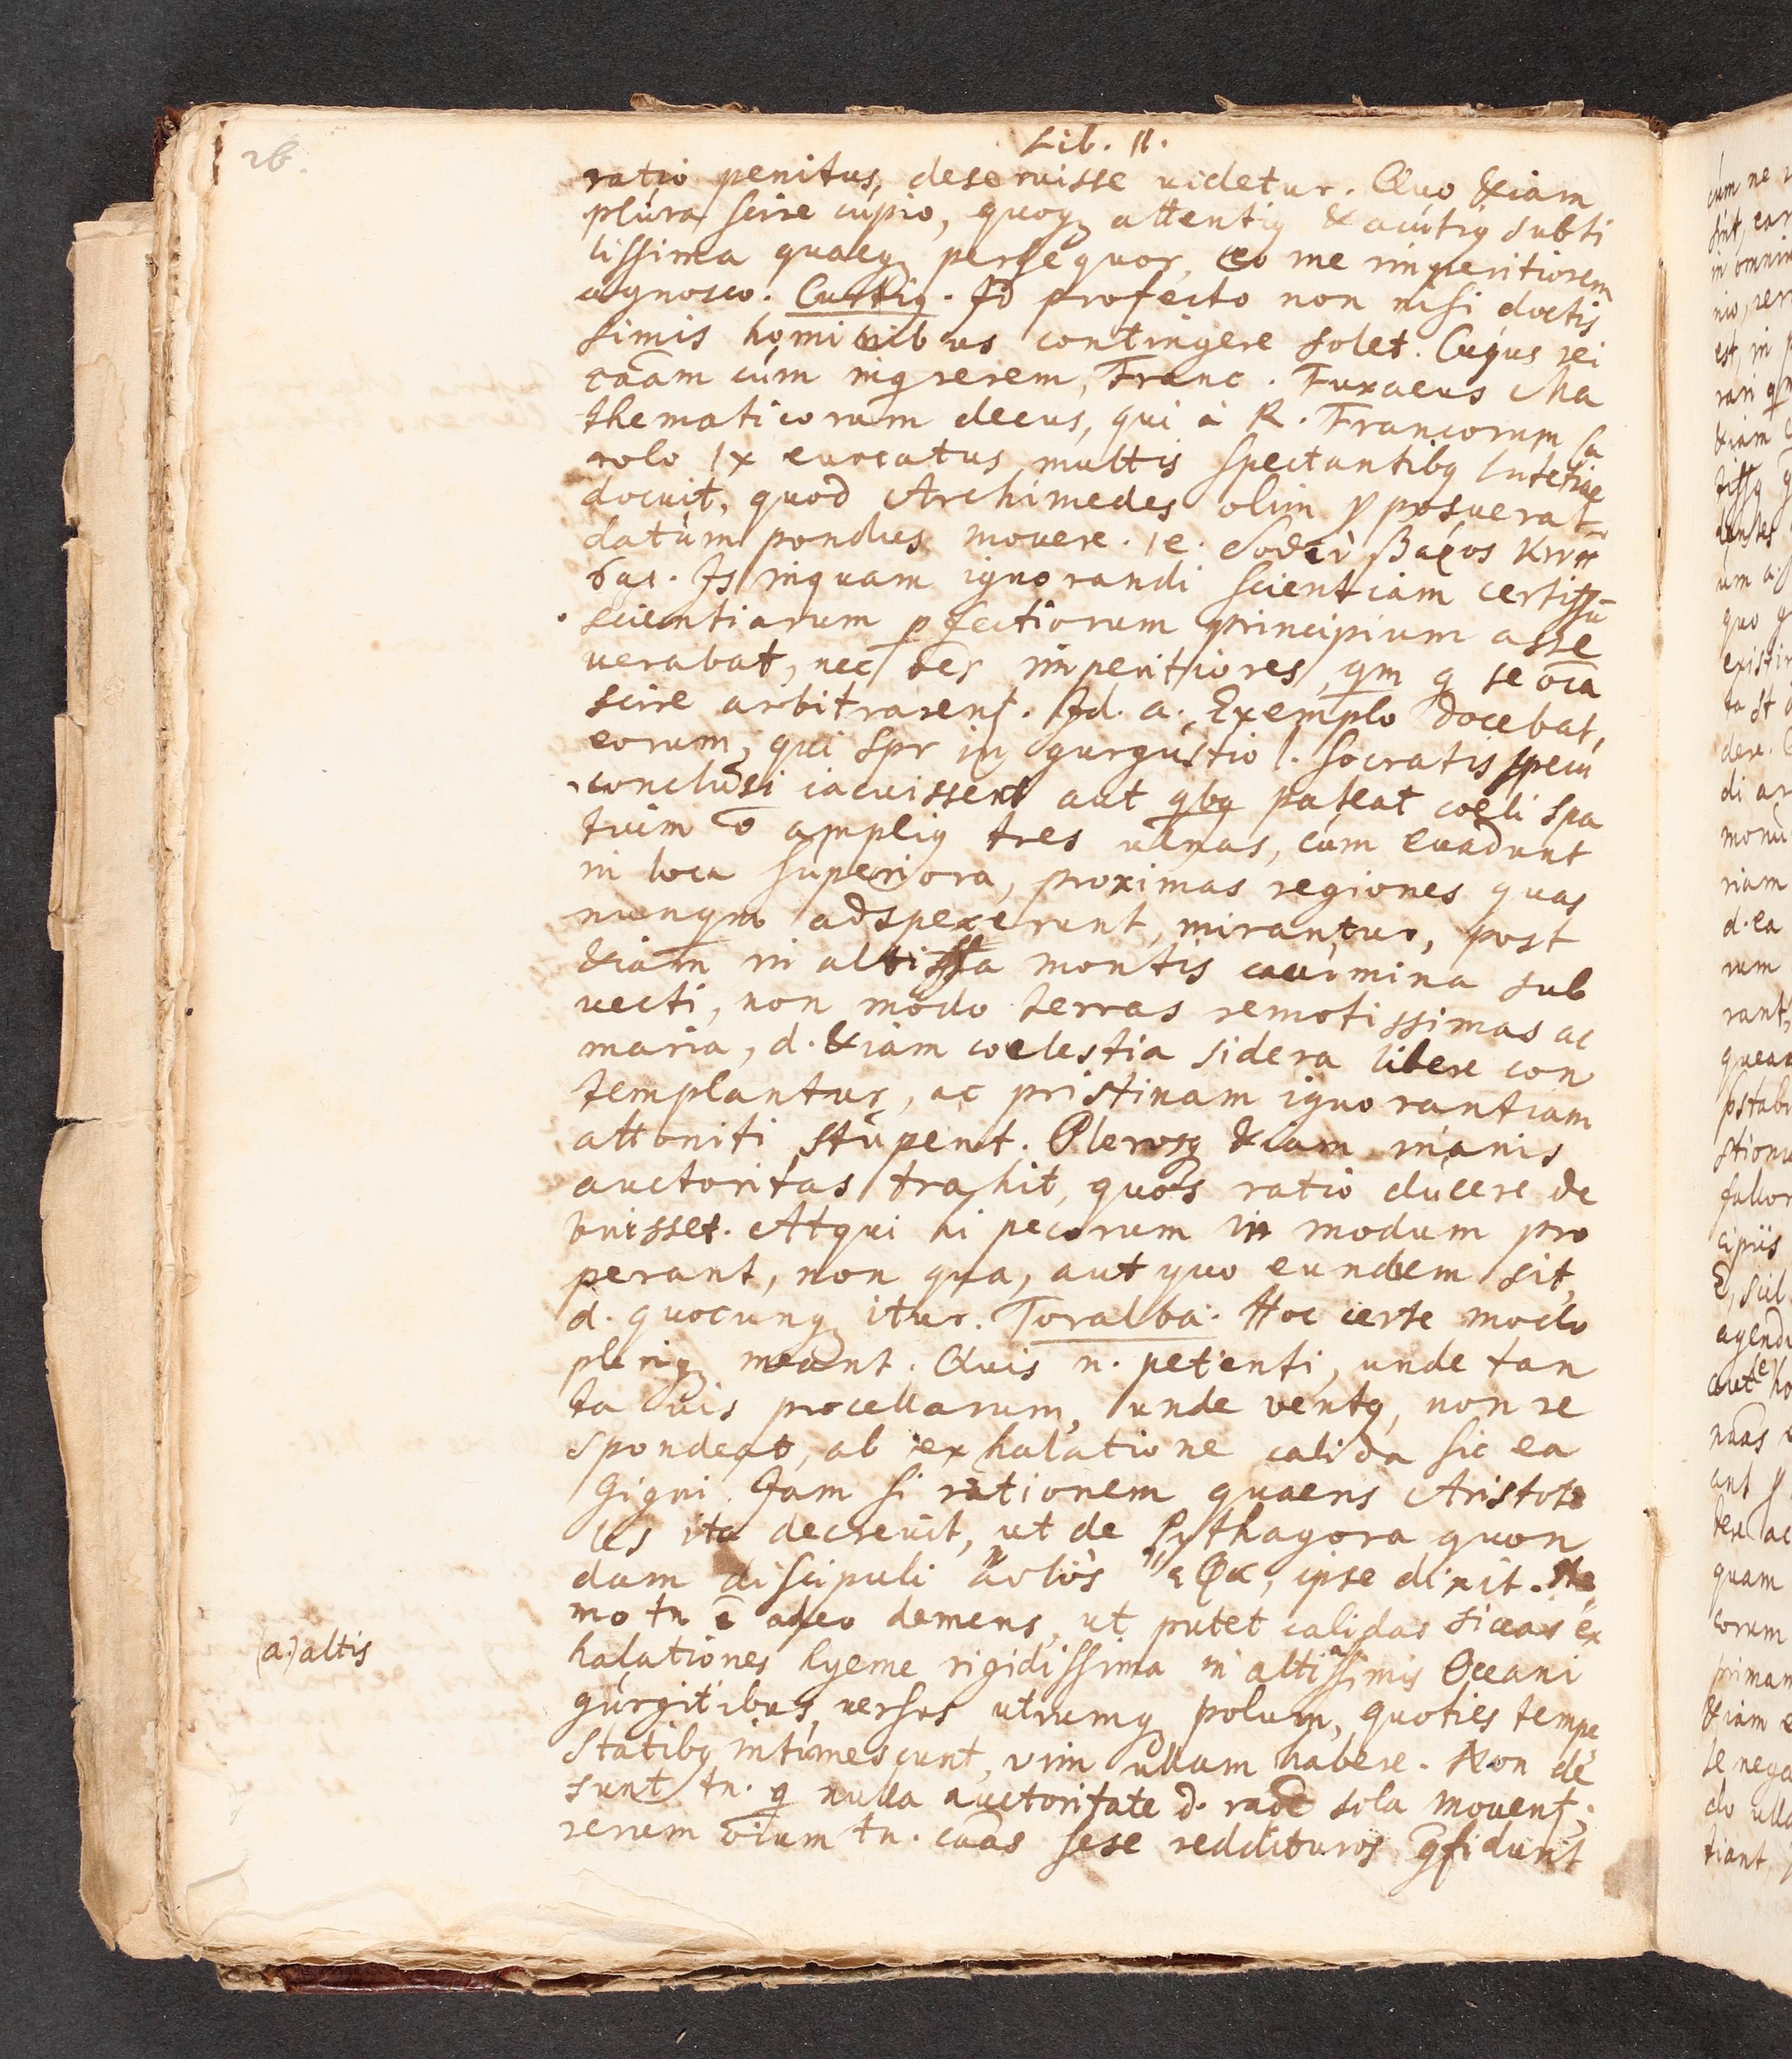 26.
Lib. II.
ratio penitus, deseruisse uidetur. Quo Etiam
plura scire cupio, quoq; attentiq & acutiq subti
lissima quaeq; persequor, eo me imperitiorem
agnosco. Curtiq. Id profecto non nisi doctis
simis hominibus contingere solet. Cujus rei
cãam cùm inqrerem, Franc. Fuxaeus Ma
thematicorum decus, qui à R. Francorum Ca
rolo IX euocatus multis spectantibq Lutetiae
docuit, quod Archimedes olim pposuerat
datùm pondus mouere. ie. βάρος κινῆ
σαι. Is inquam ignorandi scientiam certissū
scientiarum pfectiorum principium asse
uerabat, nec ēes imperitiores, qm q se oīa
scire arbitrarent. Id. a. Exemplo docebat,
eorum, qui spr in gurgustio l. Socratis specu
conclusi iacuissent aut qbq pateat coeli spa
tium ō ampliq tres ulnas, cùm euadunt
in loca superiora, proximas regiones quas
nunqm adspexerunt, mirantur, post
Etiam in altissa montis cacumina sub
uecti, non modo terras remotissimas ac
maria, d. Etiam coelestia sidera libere con
templantur, ac pristinam ignorantiam
attoniti stupent. Plerosq; Etiam inanis
auctoritas trahit, quos ratio dùcere de
buisset. Atqui hi pecorum in modum pro
perant, non qua, aut quo eundem sit,
d. quocunq; itur. Toralba. Hoc certe modo
pleriq; meant. Quis n. petenti, unde tan
ta uis procellarum, unde ventq, non re
spondeat, ab exhalatione calida sic ea
Gigni. Jam si rationem quaeris Aristote
les ita decreuit, ut de Pythagora quon
dam discipuli ἀυτὸς ἔφα, ipse dixit. Ne
mo tn ē adeo demens, ut putet calidas siccas ex
halationes hyeme rigidissima in altissimis Oceani
(a.) altis
gùrgitibus, versus utrumq; polum, quoties tempe
statibq intùmescunt, vim ullam habere. Non de
sunt tn. q nulla auctoritate d. raōe sola mouent;
rerum oīum tn. cãas sese reddituros qfidunt